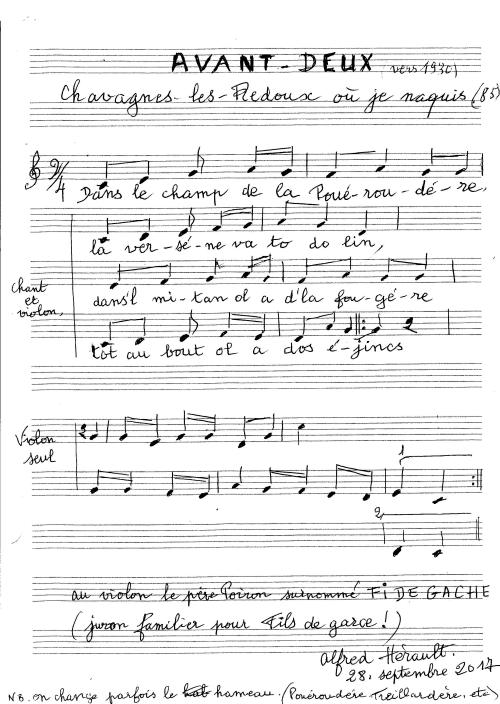 AVANT-DEUX (vers 1930)
Chavagnes-les-Redoux où je naquis (85)
2/4
Dans le champ de la Poué-rou-dé-re,
là ver-sé-ne va to do lin,
chant
et
violon,
dans'l mi-tan ol a d'la fou-gé-re
tot au bout ol a dos é-jincs
Violon
seul
1
2
au violon le père Poiron surnommé FI DE GACHE
(juron familier pour Fils de garce!)
Alfred Hérault.
28, septembre 2014
NB. on change parfois le hameau. (Pouéroudère, Treillardère, etc)